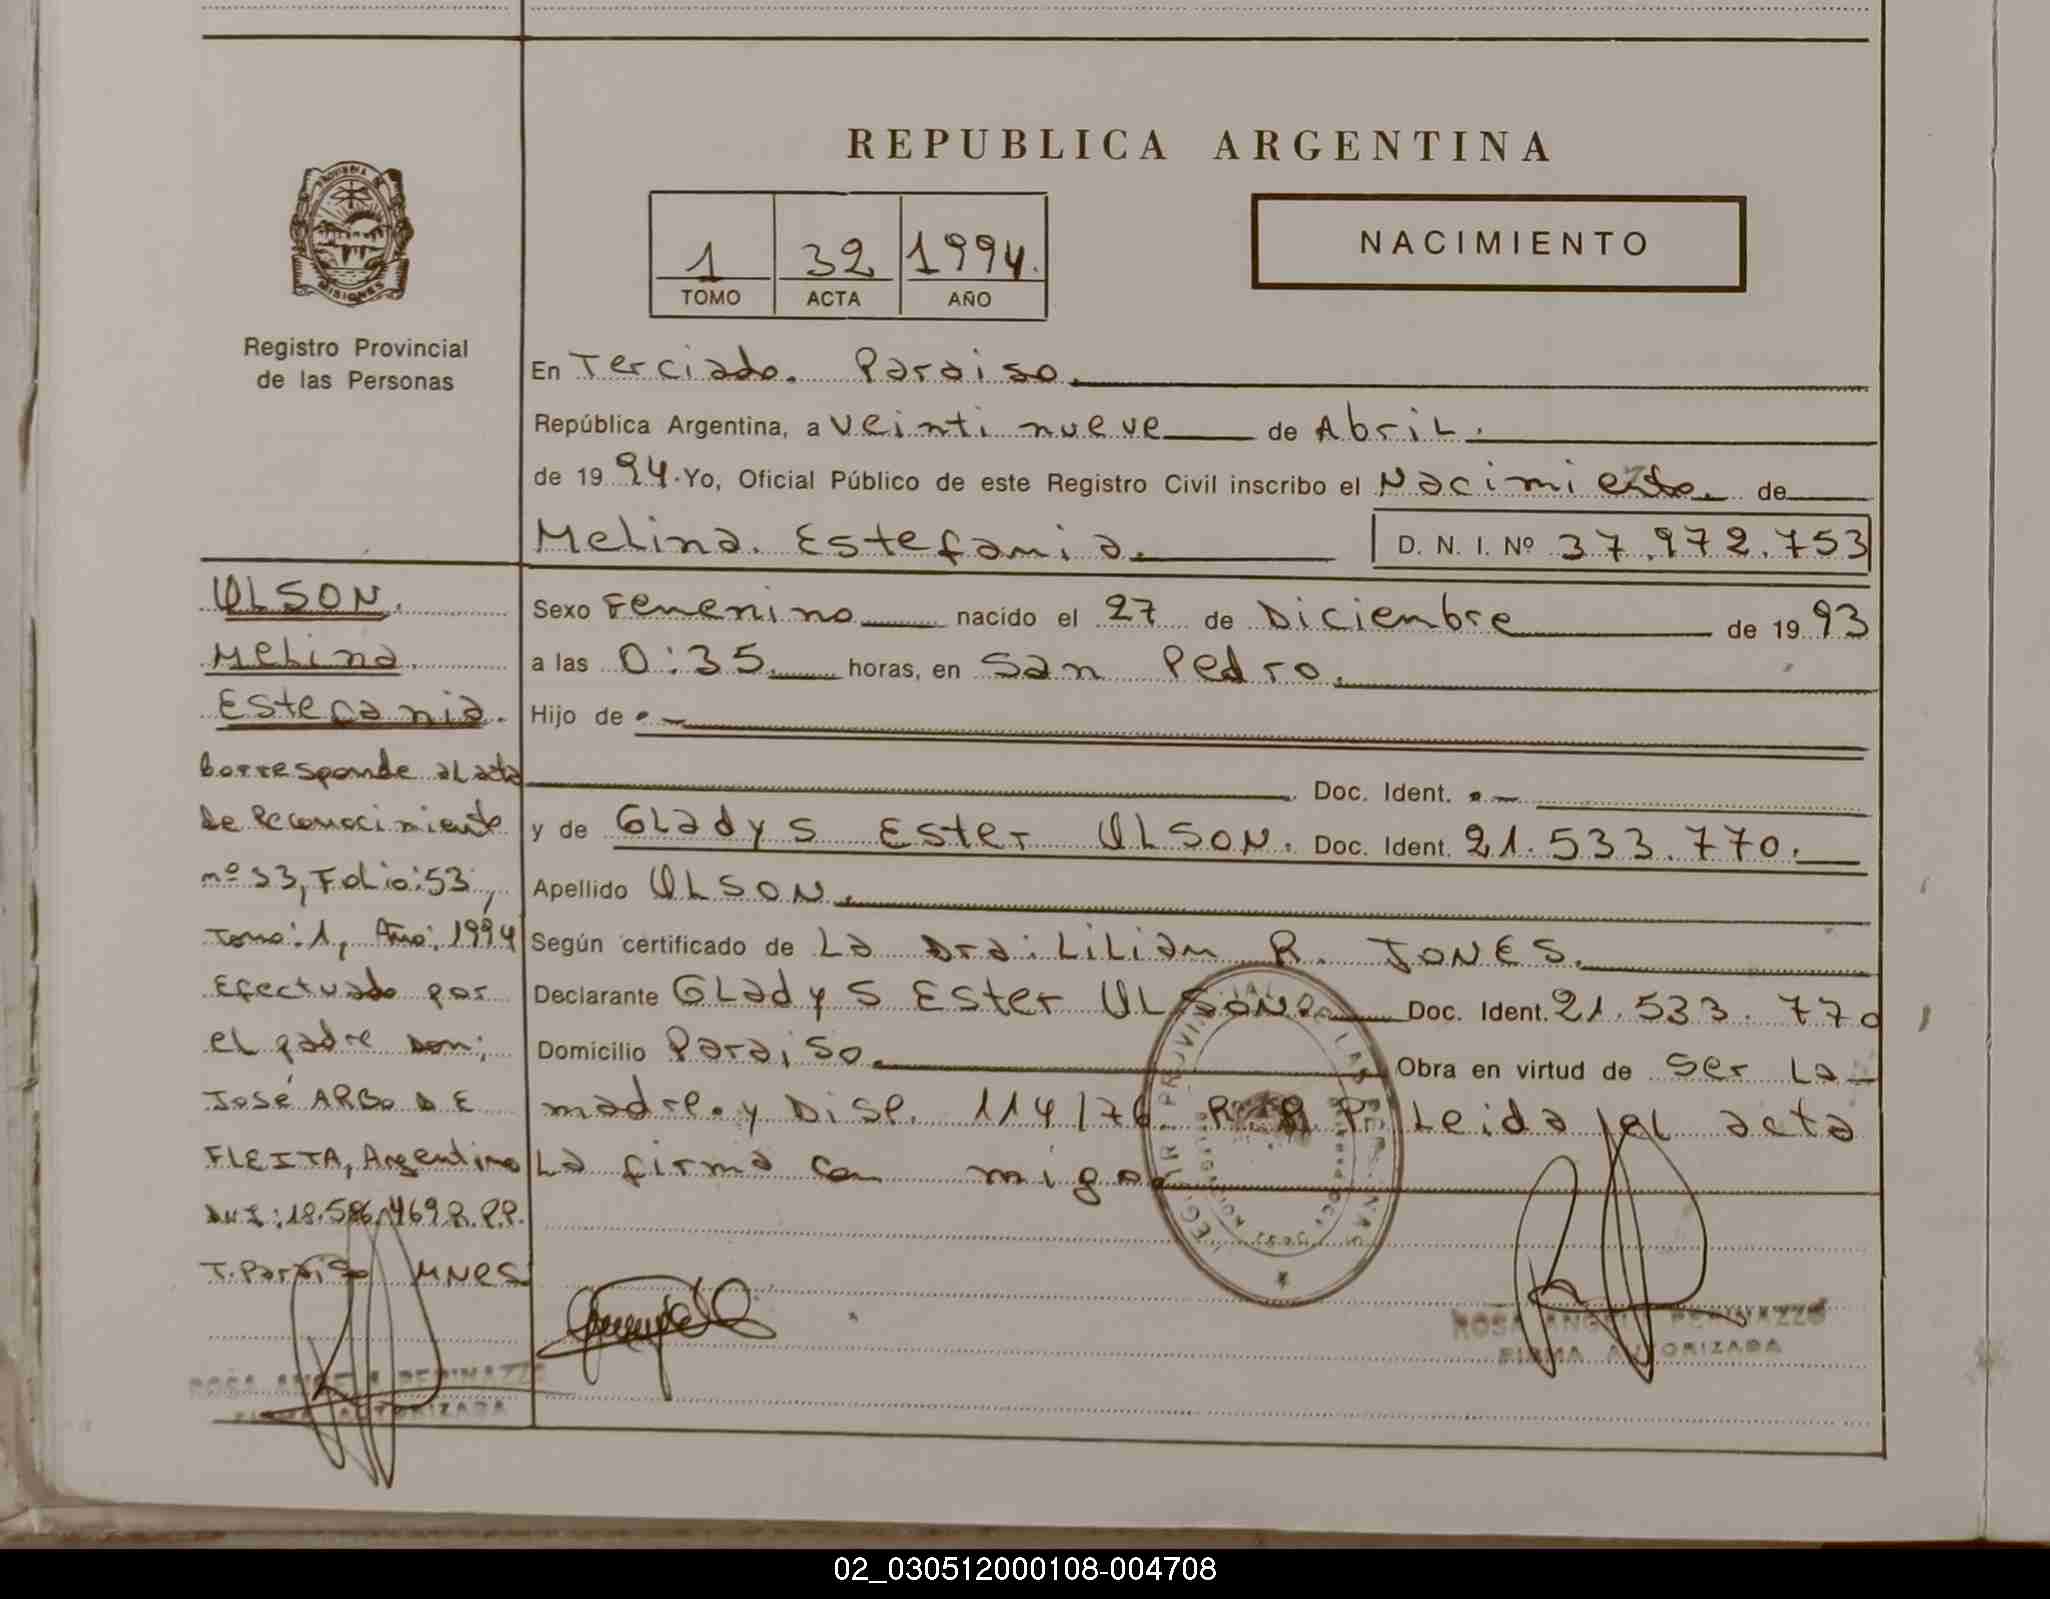 REPUBLICA ARGENTINA
PROVINCIA DE
MISIONES
1 32 1994.
TOMO ACTA AÑO
NACIMIENTO
Registro Provincial
de las Personas
En Terciado. Paraiso.
República Argentina, a veinti nueve de Abril.
de 1994. Yo, Oficial Público de este Registro Civil inscribo el Nacimiento. de
Melina. Estefania. D. N. I. Nº 37.972.753
Sexo Femenino nacido el 27 de Diciembre de 1993
a las 0:35. horas, en San Pedro.
Hijo de
Doc. Ident.
y de Gladys Ester OLSON. Doc. Ident. 21.533.770.
Apellido OLSON.
Según certificado de La Dra: Lilian R. JONES.
Declarante Gladys Ester OLSON. Doc. Ident. 21.533.770
Domicilio Paraiso. Obra en virtud de ser La
madre. y Disp. 114/76. R. R. P. Leida el acta
La firma con migo.
OLSON.
Melina
Estefania.
Corresponde al acta
de Reconocimiento
nº 53, Folio: 53,
Tomo: 1, Año: 1994
Efectuado por
el padre Don;
José ARBO DE
FLEITA, Argentino
DNI: 18.586.469 R.P.P.
T. Paraiso MNES
ROSA ANGELA PERINAZZO
FIRMA AUTORIZADA
ROSA ANGELA PERINAZZO
FIRMA AUTORIZADA
02_030512000108-004708